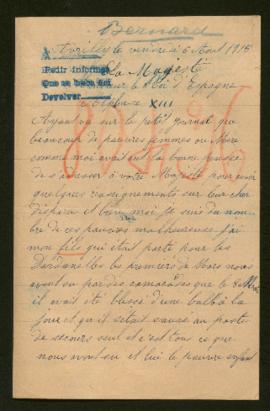 Bernard
A vrilly le vendredi 6 Aout 1915
Pedir informes
Que se sabe del
Devolver
Sa Majesté
le Roi d'Espagne
Alphonse XIII
Ayant vu sur le petit journal que
beaucoup de pauvres femmes ou Mère
comme moi avait eu la bonne pensée
de s'adresser à votre Majesté pour avoir
quelques renseignements sur leur cher
disparu et bien moi je suis du nom
bre de ces pauvres malheureuse j'ai
mon fils qui était parti pour les
Dardanelles les premiers de Mars nous
avons su par des camarades que le 8 Mai
il avait été blessé d'une balle à la
joue et qu'il s'était sauvé au poste
de secours seul et c'est tous ce que
nous avons su et lui le pauvre enfant